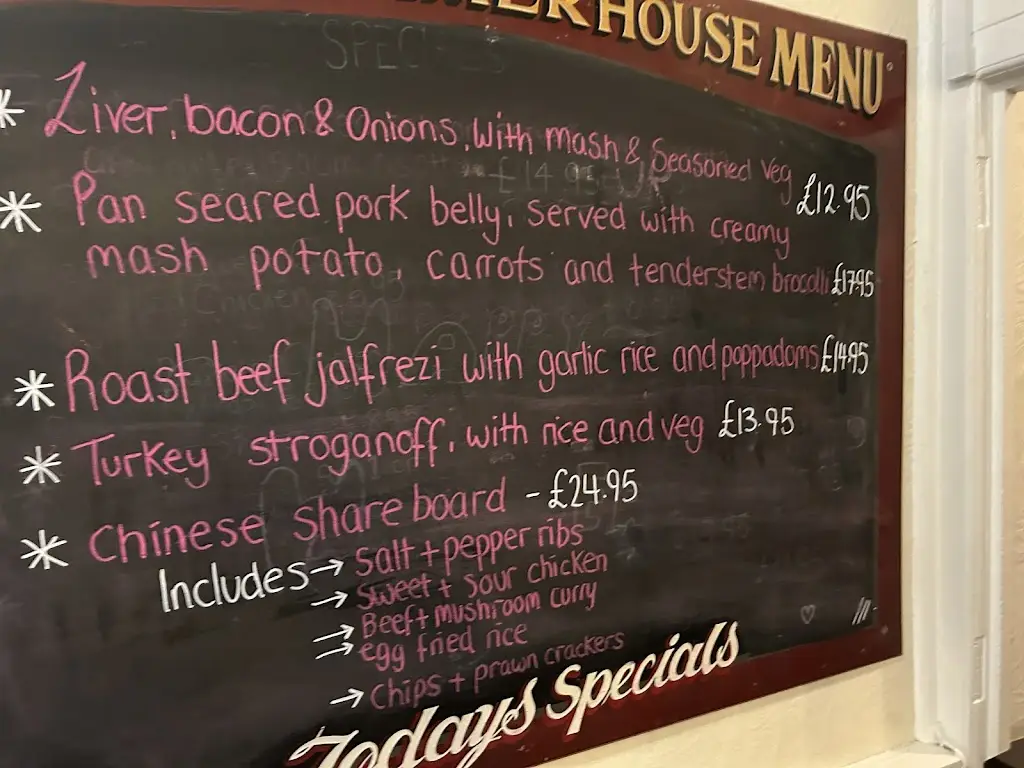 HOUSE MENU
SPECIALS
* Liver, bacon & Onions, with mash & Seasoned Veg £12.95
* Pan seared pork belly, served with creamy
mash potato, carrots and tenderstem brocolli £17.95
* Roast beef jalfrezi with garlic rice and poppadoms £14.95
* Turkey stroganoff, with rice and veg £13.95
* Chinese share board - £24.95
Includes → Salt + pepper ribs
→ Sweet + sour chicken
→ Beef + mushroom curry
→ egg fried rice
→ chips + prawn crackers
Todays Specials